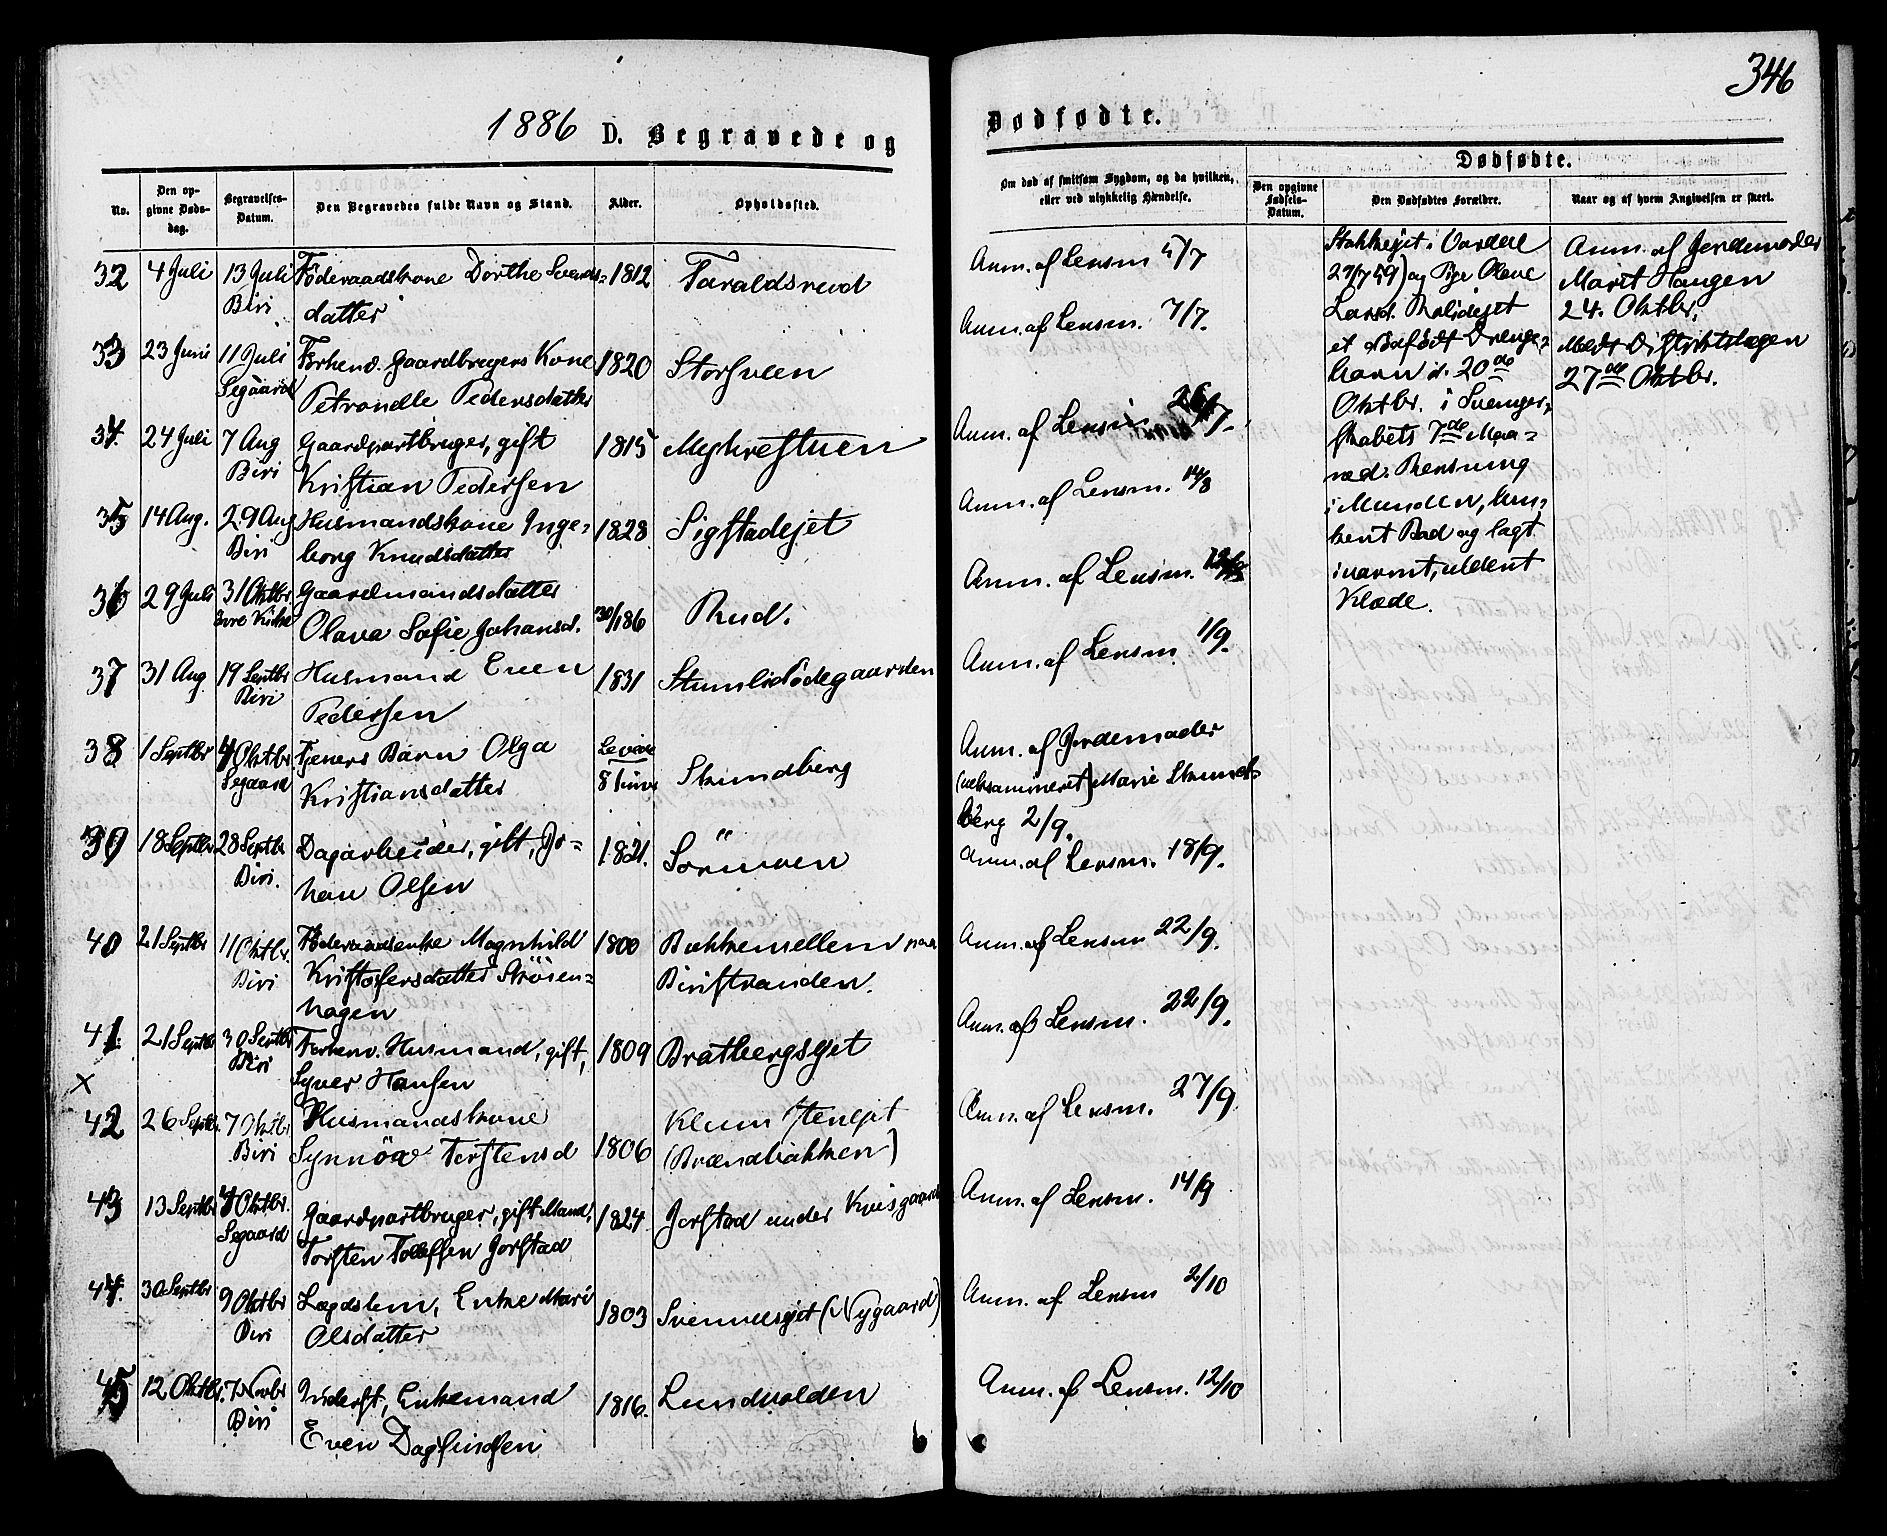 346
1886 D. Begravede og Dødfødte.
No.
Den opgivne Dødsdag.
Begravelses-Datum.
Den Begravedes fulde Navn og Stand.
Alder.
Opholdssted.
Om død af smitsom Sygdom, og da hvilken, eller ved ulykkelig Hændelse.
Dødfødte.
Den opgivne Fødsels-Datum.
Den Dødfødtes Forældre.
Naar og af hvem Angivelsen er skeet.
32 4 Juli 13 Juli Föderaadskone Dorthe Svends- 1812 Faraldsrud Anm. af Lensm 5/7
Biri datter
33 23 Juni 11 Juli Forhenv. Gaardbrugers Kone 1820 Storsveen Anm. af Lensm. 7/7.
Segaard Petronelle Pedersdatter
34. 24 Juli 7 Aug Gaardpartbruger, gift 1815 Myhrestuen Anm. af Lensm 26/7.
Biri Kristian Pedersen
35 14 Aug. 29 Aug Husmandskone Inge- 1828 Sigstadejet Anm. af Lensm. 14/8
Biri borg Knudsdatter
36 29 Juli 31 Oktbr Gaardmandsdatter Anm. af Lensm.
Olava Sofie Johansd. Rud.
37 31 Aug. 19 Septbr Husmand Even 1831 Stumlidödegaarden Anm. af Lensm. 1/9.
Biri Pedersen
38 1 Septbr 4 Oktbr Tjeners Barn Olga Levede Anm. af Jordemoder
Segaard Kristiansdatter 8 Timer Skundberg (ueksamineret) Marie Skund-
berg 2/9.
39 18 Septbr 28 Septbr Dagarbeider, gift, Jo- 1821. Sörmoen Anm. af Lensm. 18/9.
Biri. han Olsen
40 21 Septbr 11 Oktbr. Föderaadsenke Magnhild 1800 Bakkemellem paa Anm. af Lensm 22/9.
Biri Kristofersdatter Strösen- Biristranden.
hagen
41. 21 Septbr 30 Septbr Forhenv. Husmand, gift, 1809 Bratbergsejet Anm. af Lensm. 22/9.
Biri Syver Hansen
x
42 26 Septbr. 7 Oktbr Husmandskone Klumstenejet Anm. af Lensm. 27/9.
Biri Synnöve Torstensd 1806 (Brændbakken)
43 13 Septbr 4 Oktbr. Gaardpartbruger, gift Mand, 1824 Jorstad under Kvisgaard Anm. af Lensm. 14/9
Segaard Torsten Tollefsen Jorstad
44. 30 Septbr 9 Oktbr Lægdslem, Enke Mari 1803 Svennesejet (Nygaard) Anm. af Lensm 2/10
Biri Olsdatter
45 12 Oktbr. 7 Novbr Inderst, Enkemand 1816. Lundvolden Anm. af Lensm. 12/10
Biri Even Dagfindsen
Stokkejet.
27/7 59) og Pige Olave
Larsd.
et dödfödt Drenge-
barn d. 20de
Oktbr. i Svanger-
skabets 7de Maa-
ned. Rensning
i Munden, lun-
kent Bad og lagt
i varmt, uldent
Klæde.
Anm. af Jordemoder
Marit Haugen
24. Oktbr.
Meldt Distriktslægen
27de Oktbr.